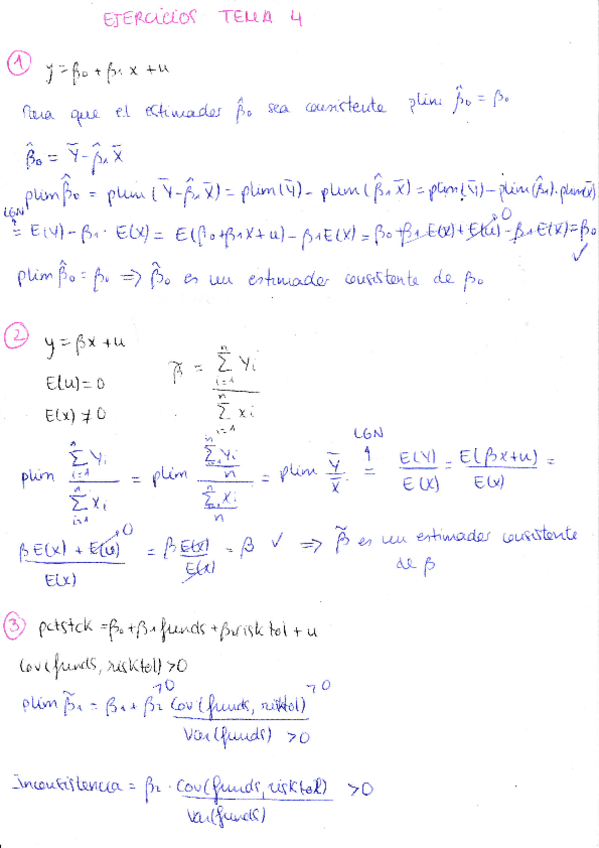 EJERCICIOS TEMA 4
1 y = β₀ + β₁x + u
Para que el estimador β̂₀ sea consistente plim β̂₀ = β₀
β̂₀ = Ȳ - β̂₁X̄
plim β̂₀ = plim (Ȳ - β̂₁X̄) = plim (Ȳ) - plim (β̂₁X̄) = plim (Ȳ) - plim (β̂₁)·plim (X̄)
LGN
= E(Y) - β₁·E(X) = E(β₀ + β₁X + u) - β₁E(X) = β₀ + β₁E(X) + E(u) - β₁E(X) = β₀ ✓
0
plim β̂₀ = β₀ ⟹ β̂₀ es un estimador consistente de β₀
2 y = βx + u
E(u) = 0
E(x) ≠ 0
β̃ = Σⁿᵢ₌₁ Yᵢ / Σⁿᵢ₌₁ xᵢ
LGN
plim Σⁿᵢ₌₁ Yᵢ / Σⁿᵢ₌₁ Xᵢ = plim (Σⁿᵢ₌₁ Yᵢ / n) / (Σⁿᵢ₌₁ Xᵢ / n) = plim Ȳ / X̄ = E(Y) / E(X) = E(βx + u) / E(x) =
0
βE(x) + E(u) / E(x) = β E(x) / E(x) = β ✓ ⟹ β̃ es un estimador consistente
de β
3 pctstck = β₀ + β₁funds + β₂risktol + u
Cov(funds, risktol) > 0
plim β̃₁ = β₁ + β₂ >0 Cov(funds, risktol) >0 / Var(funds) > 0
Inconsistencia = β₂ · Cov(funds, risktol) / Var(funds) > 0